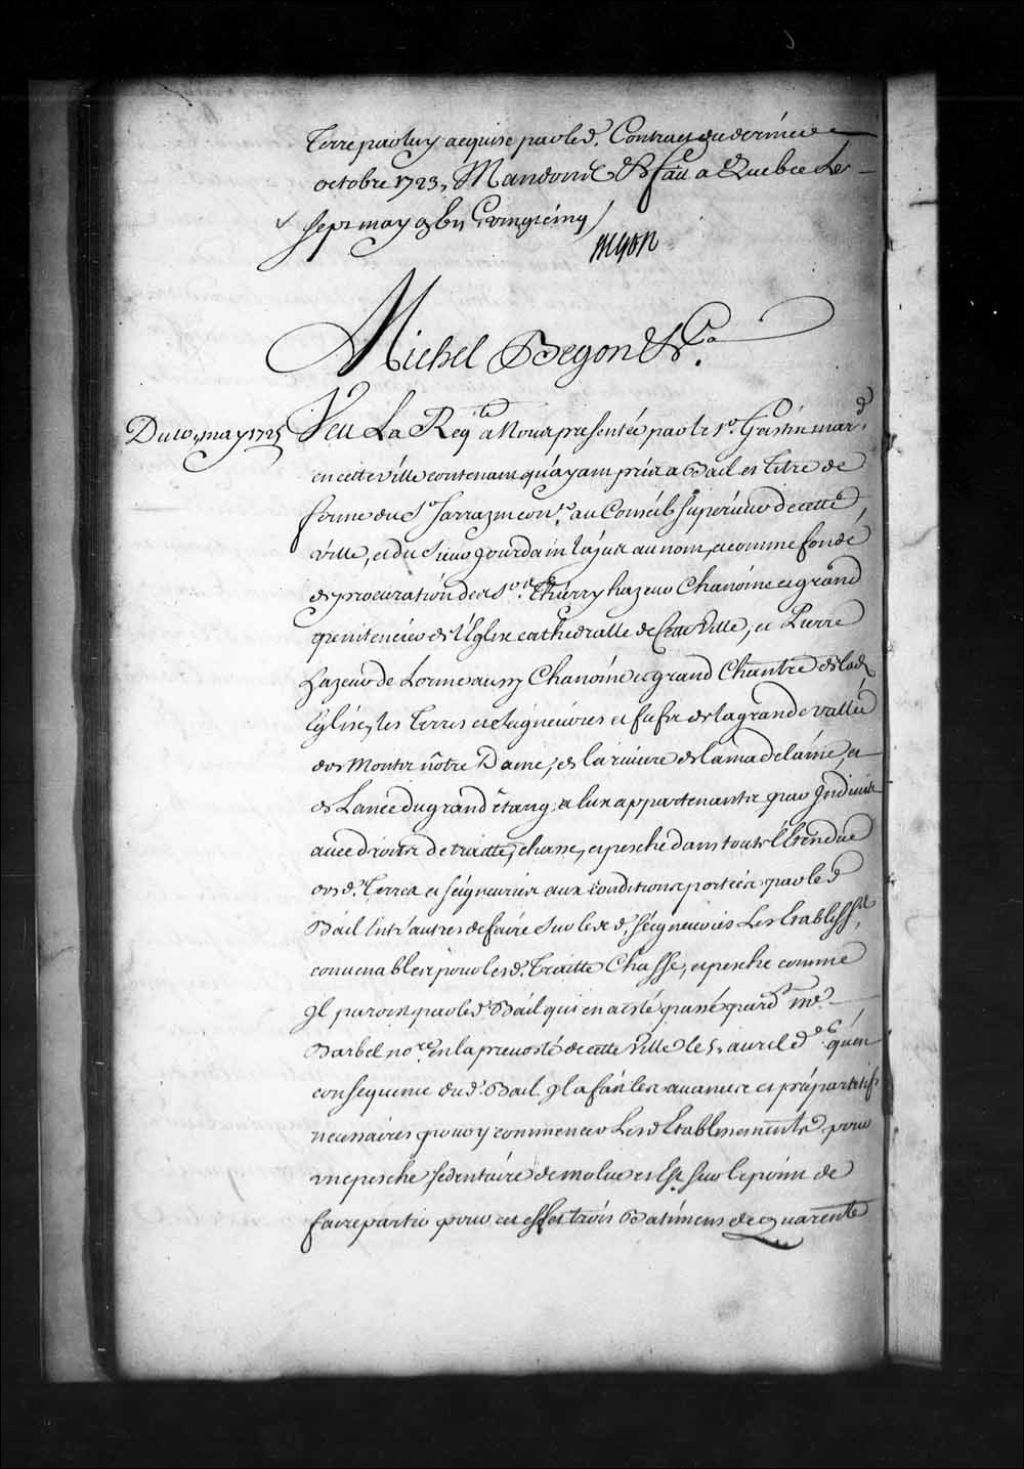 Terre par luy acquise par led. Contract du dernier
octobre 1723, Mandons &c fait a Quebec le
sept may 1725 vingt cinq
Begon
Michel Begon &ca.
Du 10. may 1725
Veu La Reqte a Nous presentée par le Sr. Gastin mard.
en cette ville contenant qu'ayant pris a Bail et titre de
ferme du Sr Sarrazin conr. au Conseil superieur de cette
ville, et du Sieur Jourdain Lajus au nom, et comme fondé
de procuration des Srs. Thierry hazeur Chanoine et grand
penitencier de l'Eglise cathedralle de Cette Ville, et Pierre
hazeur de Lorme aussy Chanoine et grand Chantre de lad.
Eglise, les Terres et seigneuries et fiefs de la grande vallée
des Monts nôtre Dame, de la riviere de la madelaine, et
de L'ance du grand êtang a eux appartenants par Indivis
avec droits de traitte, chasse, et pesche dans toute l'Etendue
desd. Terres et seigneuries aux conditions portées par led
Bail Entr'autres de faire sur lesd. seigneuries Les Etablissts.
convenables pour lesd. Traitte Chasse, et pesche comme
Il paroist par led. Bail qui en a esté passé pardt. Me.
Barbel nore. en la prevosté de cette Ville le 5. avril dr. qu'en
consequence dud. Bail Il a fait les avances et préparatifs
necessaires pour y commencer Lesd Etablissements pour
une pesche sedentaire de molue et Est sur le point de
faire partir pour cet effet trois Batimens de quarente